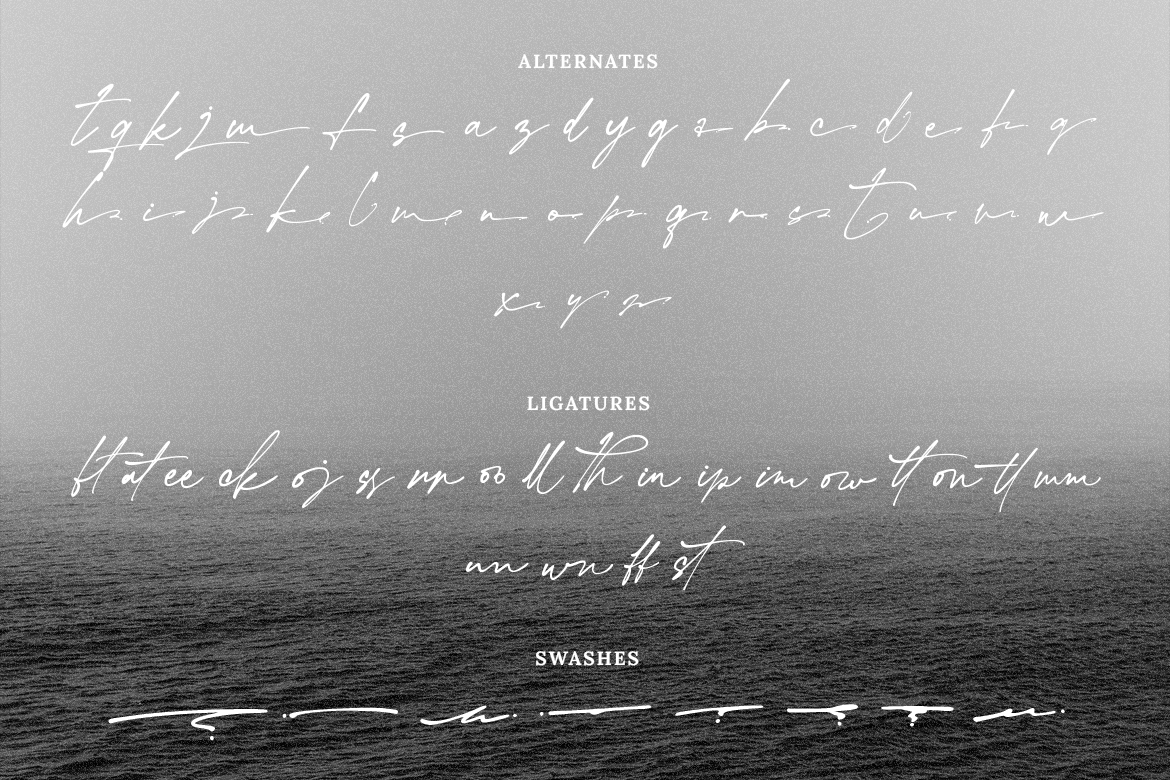 ALTERNATES
t g k j m f s a z d y g a b c d e f g
h i j k l m n o p q r s t u v w
x y z
LIGATURES
ft at ee ck oj ss rr oo ll th in ip im ow tt on tl mm
un wn ff st
SWASHES